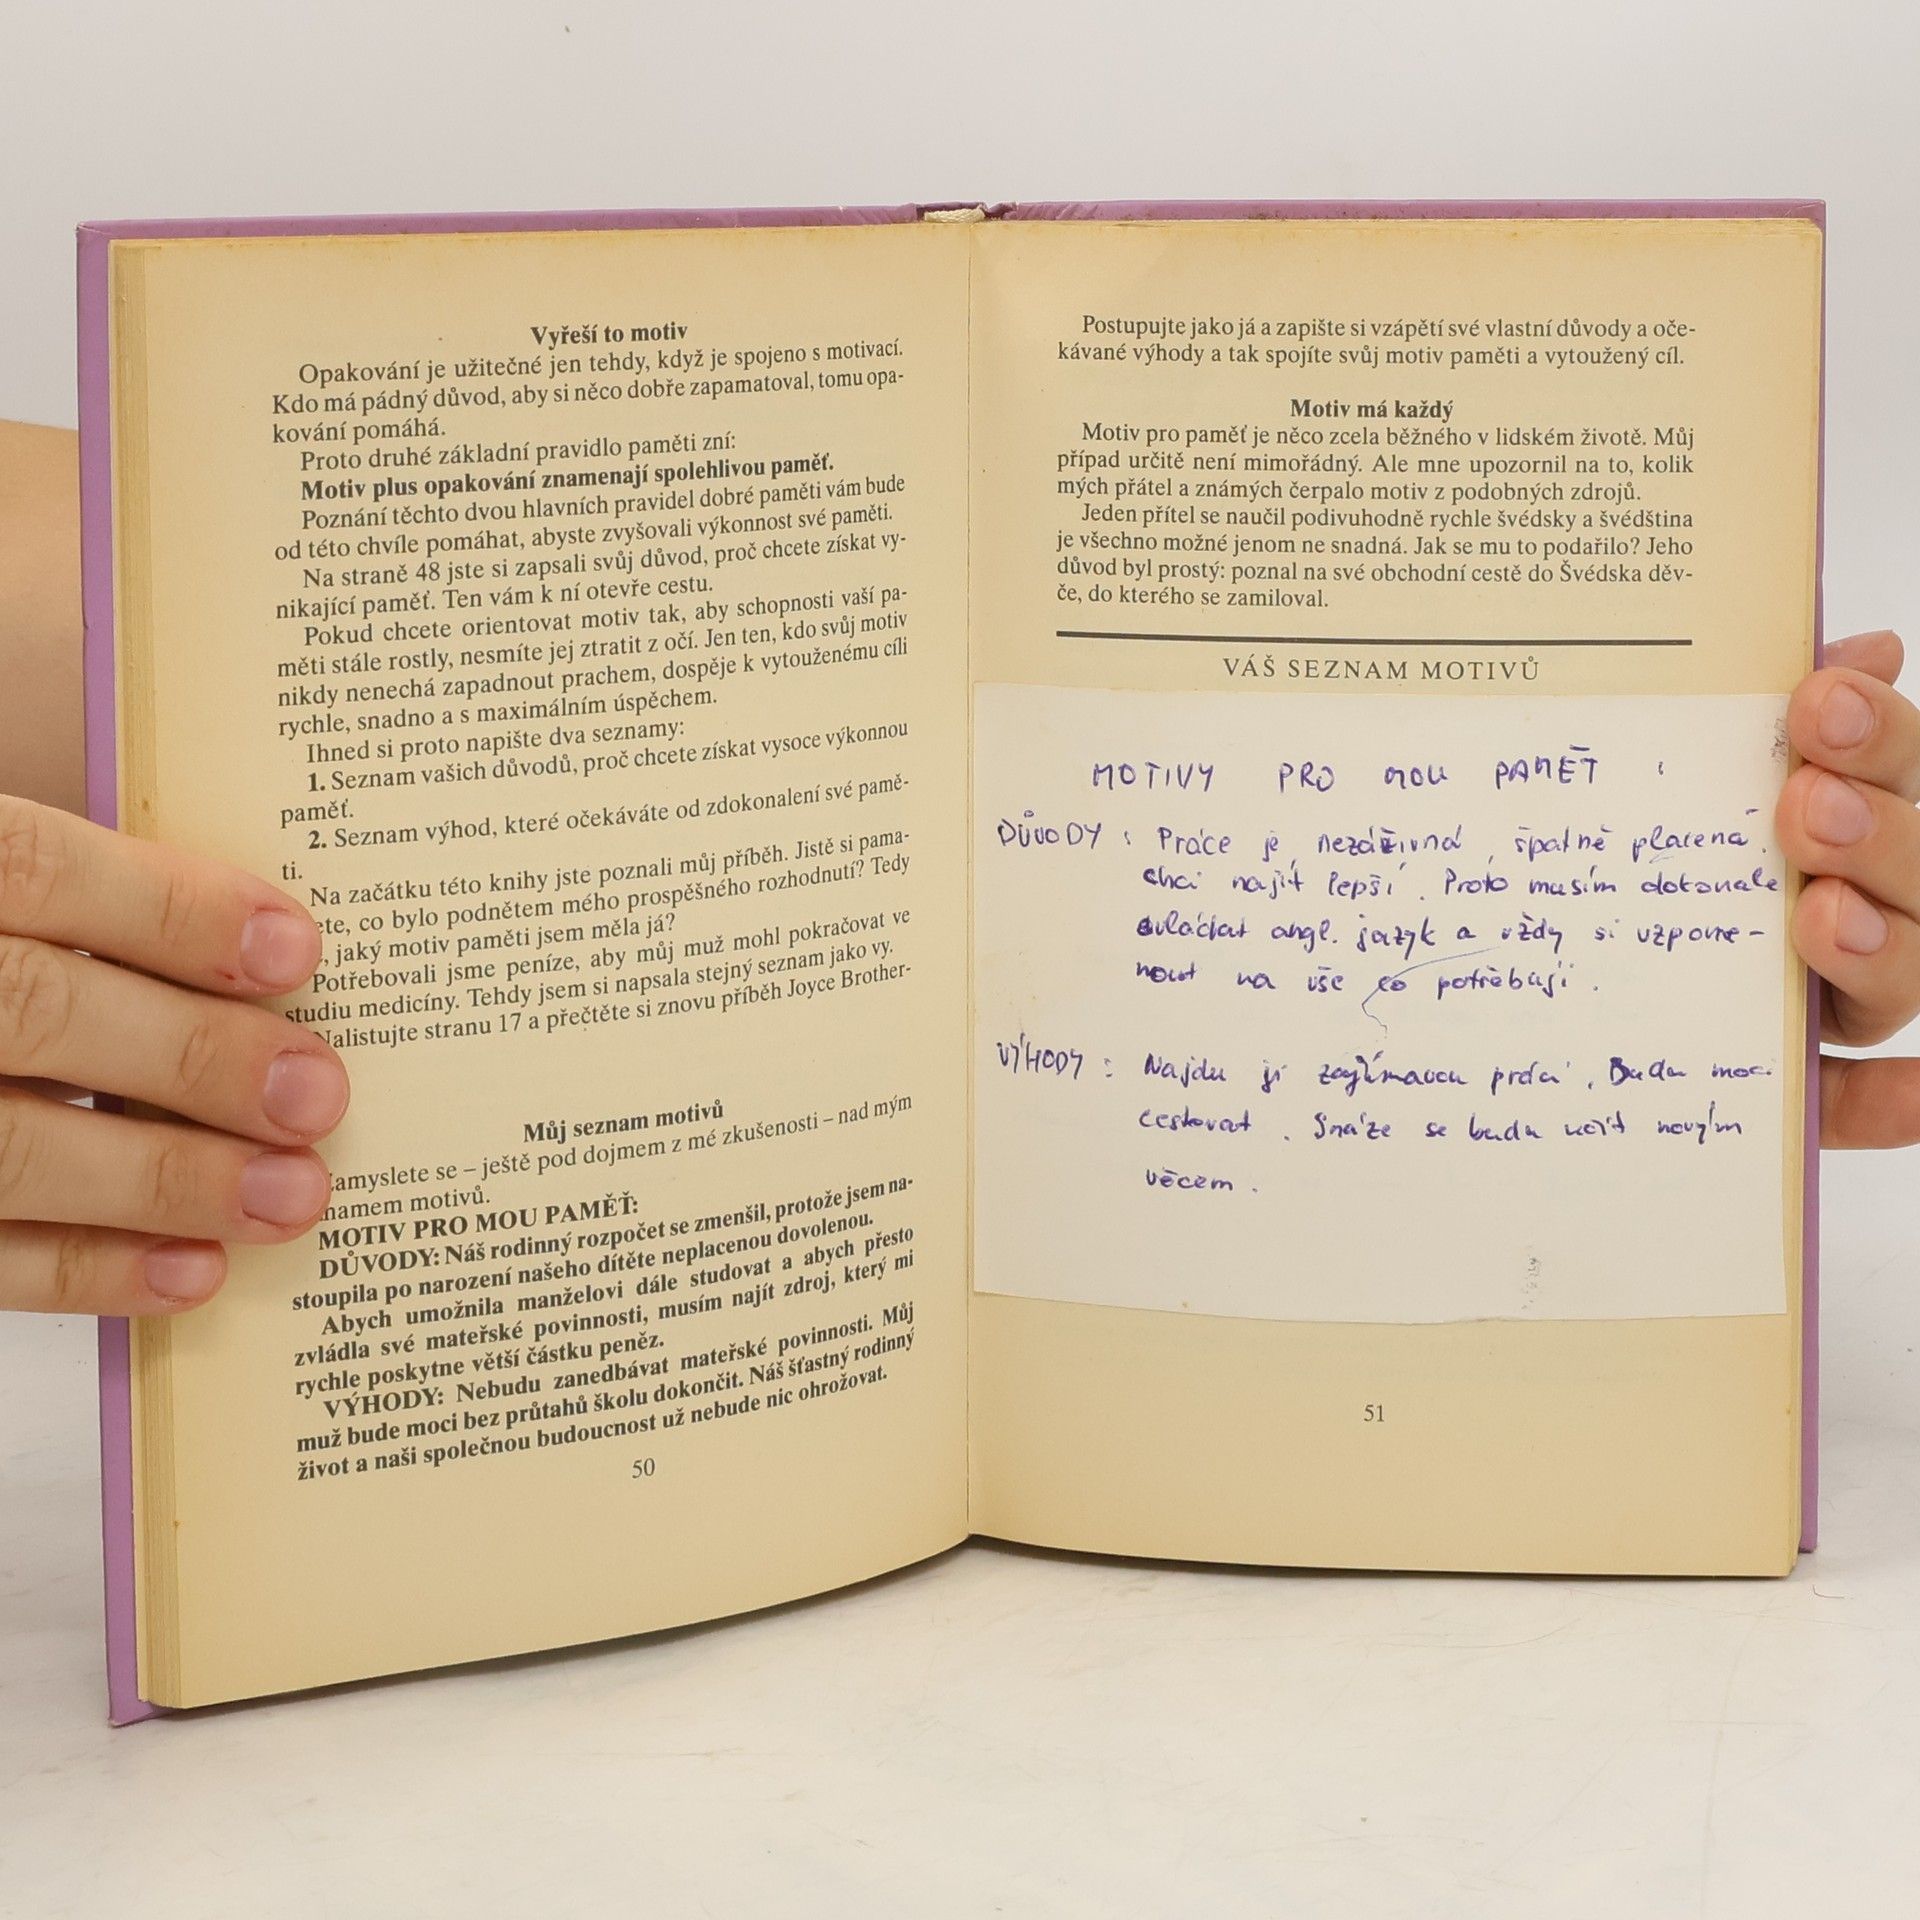 Vyřeší to motiv
Opakování je užitečné jen tehdy, když je spojeno s motivací.
Kdo má pádný důvod, aby si něco dobře zapamatoval, tomu opa-
kování pomáhá.
Proto druhé základní pravidlo paměti zní:
Motiv plus opakování znamenají spolehlivou paměť.
Poznání těchto dvou hlavních pravidel dobré paměti vám bude
od této chvíle pomáhat, abyste zvyšovali výkonnost své paměti.
Na straně 48 jste si zapsali svůj důvod, proč chcete získat vy-
nikající paměť. Ten vám k ní otevře cestu.
Pokud chcete orientovat motiv tak, aby schopnosti vaší pa-
měti stále rostly, nesmíte jej ztratit z očí. Jen ten, kdo svůj motiv
nikdy nenechá zapadnout prachem, dospěje k vytouženému cíli
rychle, snadno a s maximálním úspěchem.
Ihned si proto napište dva seznamy:
1. Seznam vašich důvodů, proč chcete získat vysoce výkonnou
paměť.
2. Seznam výhod, které očekáváte od zdokonalení své pamě-
ti.
Na začátku této knihy jste poznali můj příběh. Jistě si pama-
ete, co bylo podnětem mého prospěšného rozhodnutí? Tedy
, jaký motiv paměti jsem měla já?
Potřebovali jsme peníze, aby můj muž mohl pokračovat ve
studiu medicíny. Tehdy jsem si napsala stejný seznam jako vy.
Nalistujte stranu 17 a přečtěte si znovu příběh Joyce Brother-
Můj seznam motivů
amyslete se – ještě pod dojmem z mé zkušenosti – nad mým
namem motivů.
MOTIV PRO MOU PAMĚŤ:
DŮVODY: Náš rodinný rozpočet se zmenšil, protože jsem na-
stoupila po narození našeho dítěte neplacenou dovolenou.
Abych umožnila manželovi dále studovat a abych přesto
zvládla své mateřské povinnosti, musím najít zdroj, který mi
rychle poskytne větší částku peněz.
VÝHODY: Nebudu zanedbávat mateřské povinnosti. Můj
muž bude moci bez průtahů školu dokončit. Náš šťastný rodinný
život a naši společnou budoucnost už nebude nic ohrožovat.
50
Postupujte jako já a zapište si vzápětí své vlastní důvody a oče-
kávané výhody a tak spojíte svůj motiv paměti a vytoužený cíl.
Motiv má každý
Motiv pro paměť je něco zcela běžného v lidském životě. Můj
případ určitě není mimořádný. Ale mne upozornil na to, kolik
mých přátel a známých čerpalo motiv z podobných zdrojů.
Jeden přítel se naučil podivuhodně rychle švédsky a švédština
je všechno možné jenom ne snadná. Jak se mu to podařilo? Jeho
důvod byl prostý: poznal na své obchodní cestě do Švédska děv-
če, do kterého se zamiloval.
VÁŠ SEZNAM MOTIVŮ
MOTIVY PRO MOU PAMĚT :
DŮVODY : Práce je nezáživná, špatně placená.
chci najít lepší. Proto musím dokonale
ovládat angl. jazyk a vždy si vzpome-
nout na vše co potřebuji.
VÝHODY : Najdu si zajímavou práci. Budu moci
cestovat. Snáze se budu učit novým
věcem.
51